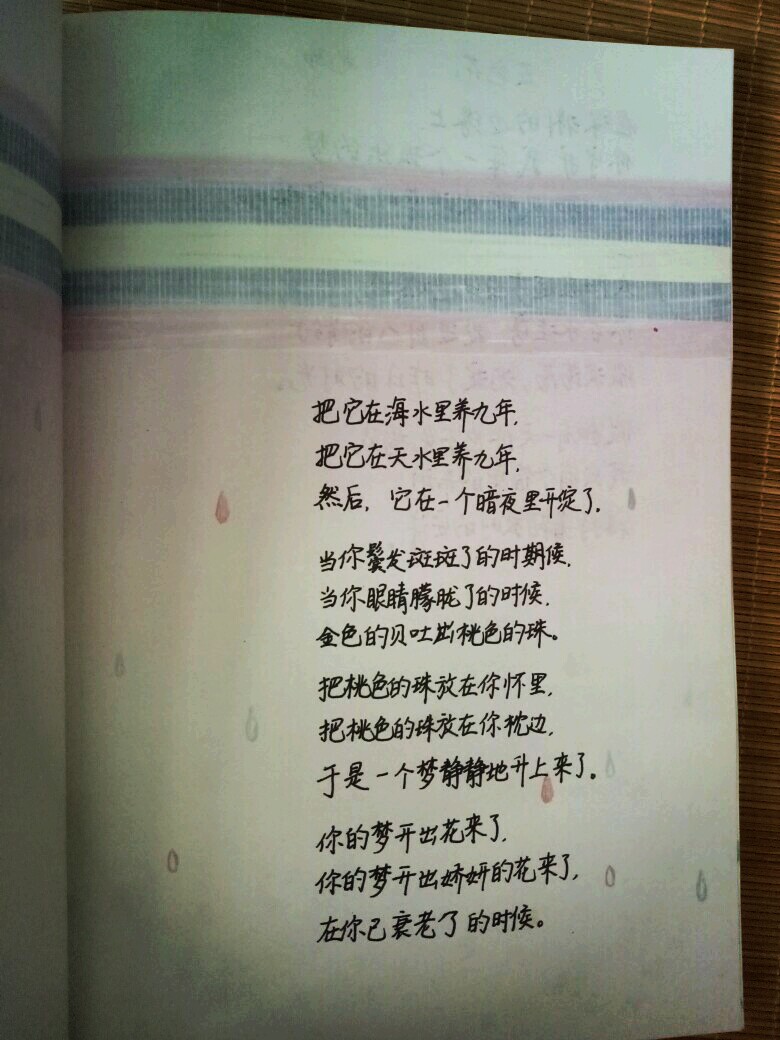 把它在海水里养九年，
把它在天水里养九年，
然后，它在一个暗夜里开绽了。
当你鬓发斑斑了的时期候，
当你眼睛朦胧了的时候，
金色的贝吐出桃色的珠。
把桃色的珠放在你怀里，
把桃色的珠放在你枕边，
于是一个梦静静地升上来了。
你的梦开出花来了，
你的梦开出娇妍的花来了，
在你已衰老了的时候。